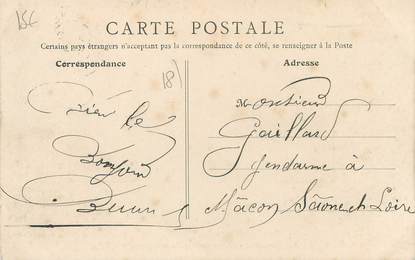 15€
CARTE POSTALE
Certains pays étrangers n'acceptant pas la correspondance de ce côté, se renseigner à la Poste
Correspondance
Adresse
18
le
Bonjour
Monsieur
Gaillard
gendarme à
Mâcon Saône et Loire